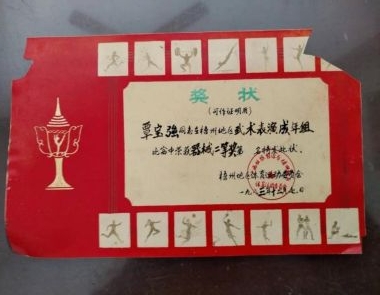 奖状
(可作证明用)
覃宝强同志在梧州地区武术表演成年组
比赛中荣获器械二等奖第 名特发此状。
梧州地区体育运动委员会
一九八二年十二月七日